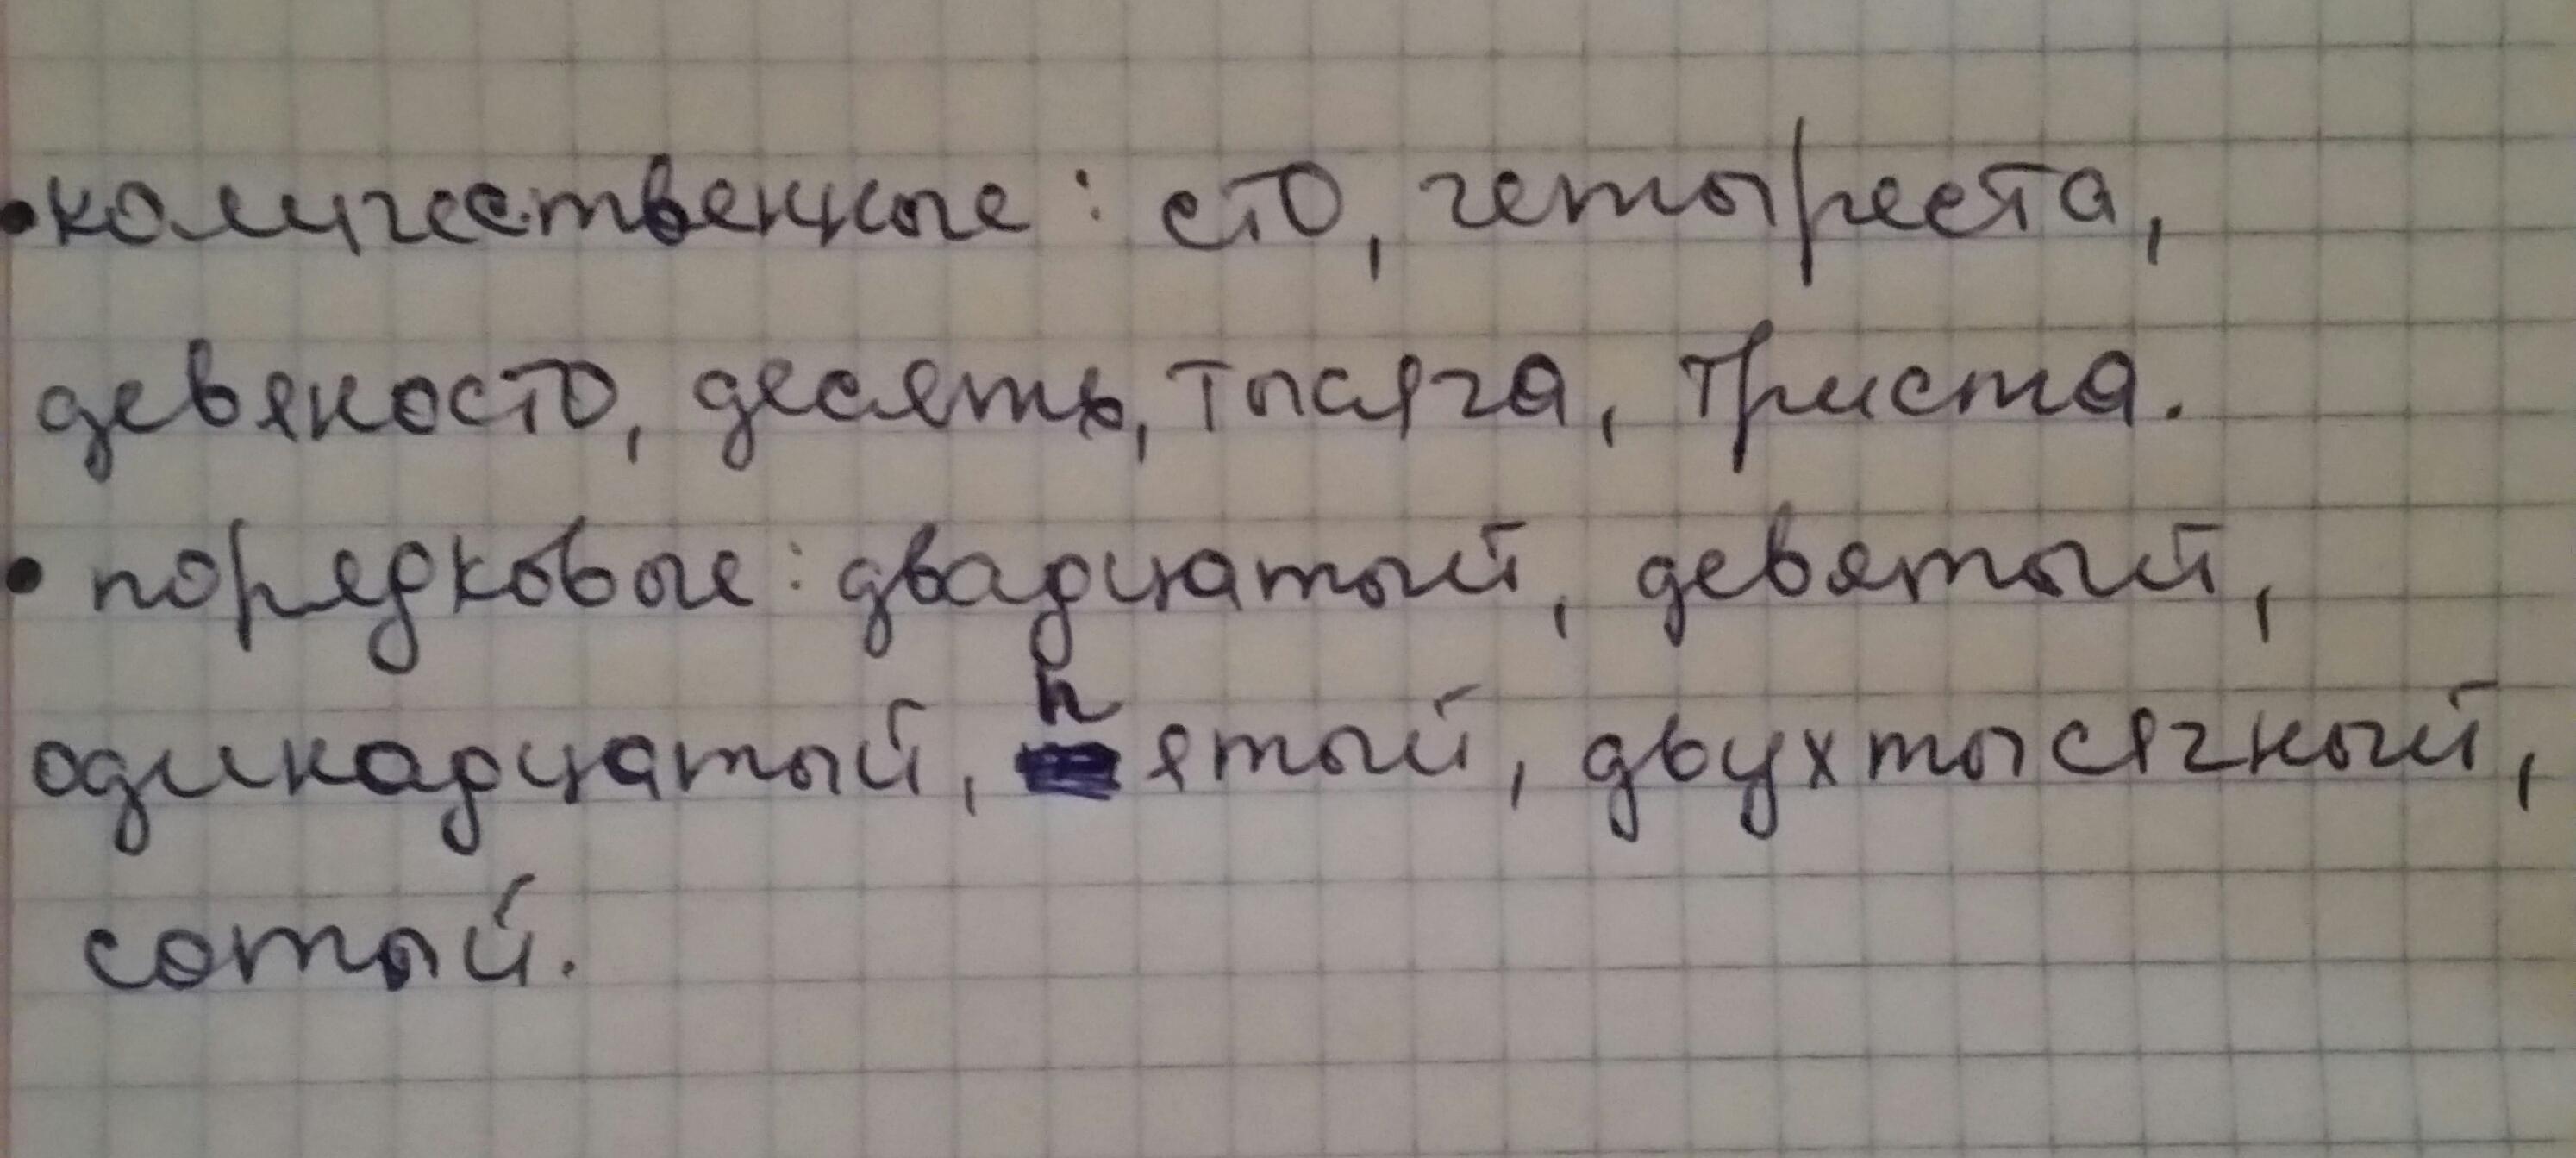 • количественные: сто, четыреста,
девяносто, десять, тысяча, триста.
• порядковые: двадцатый, девятый,
одинадцатый, пятый, двухтысячный,
сотый.